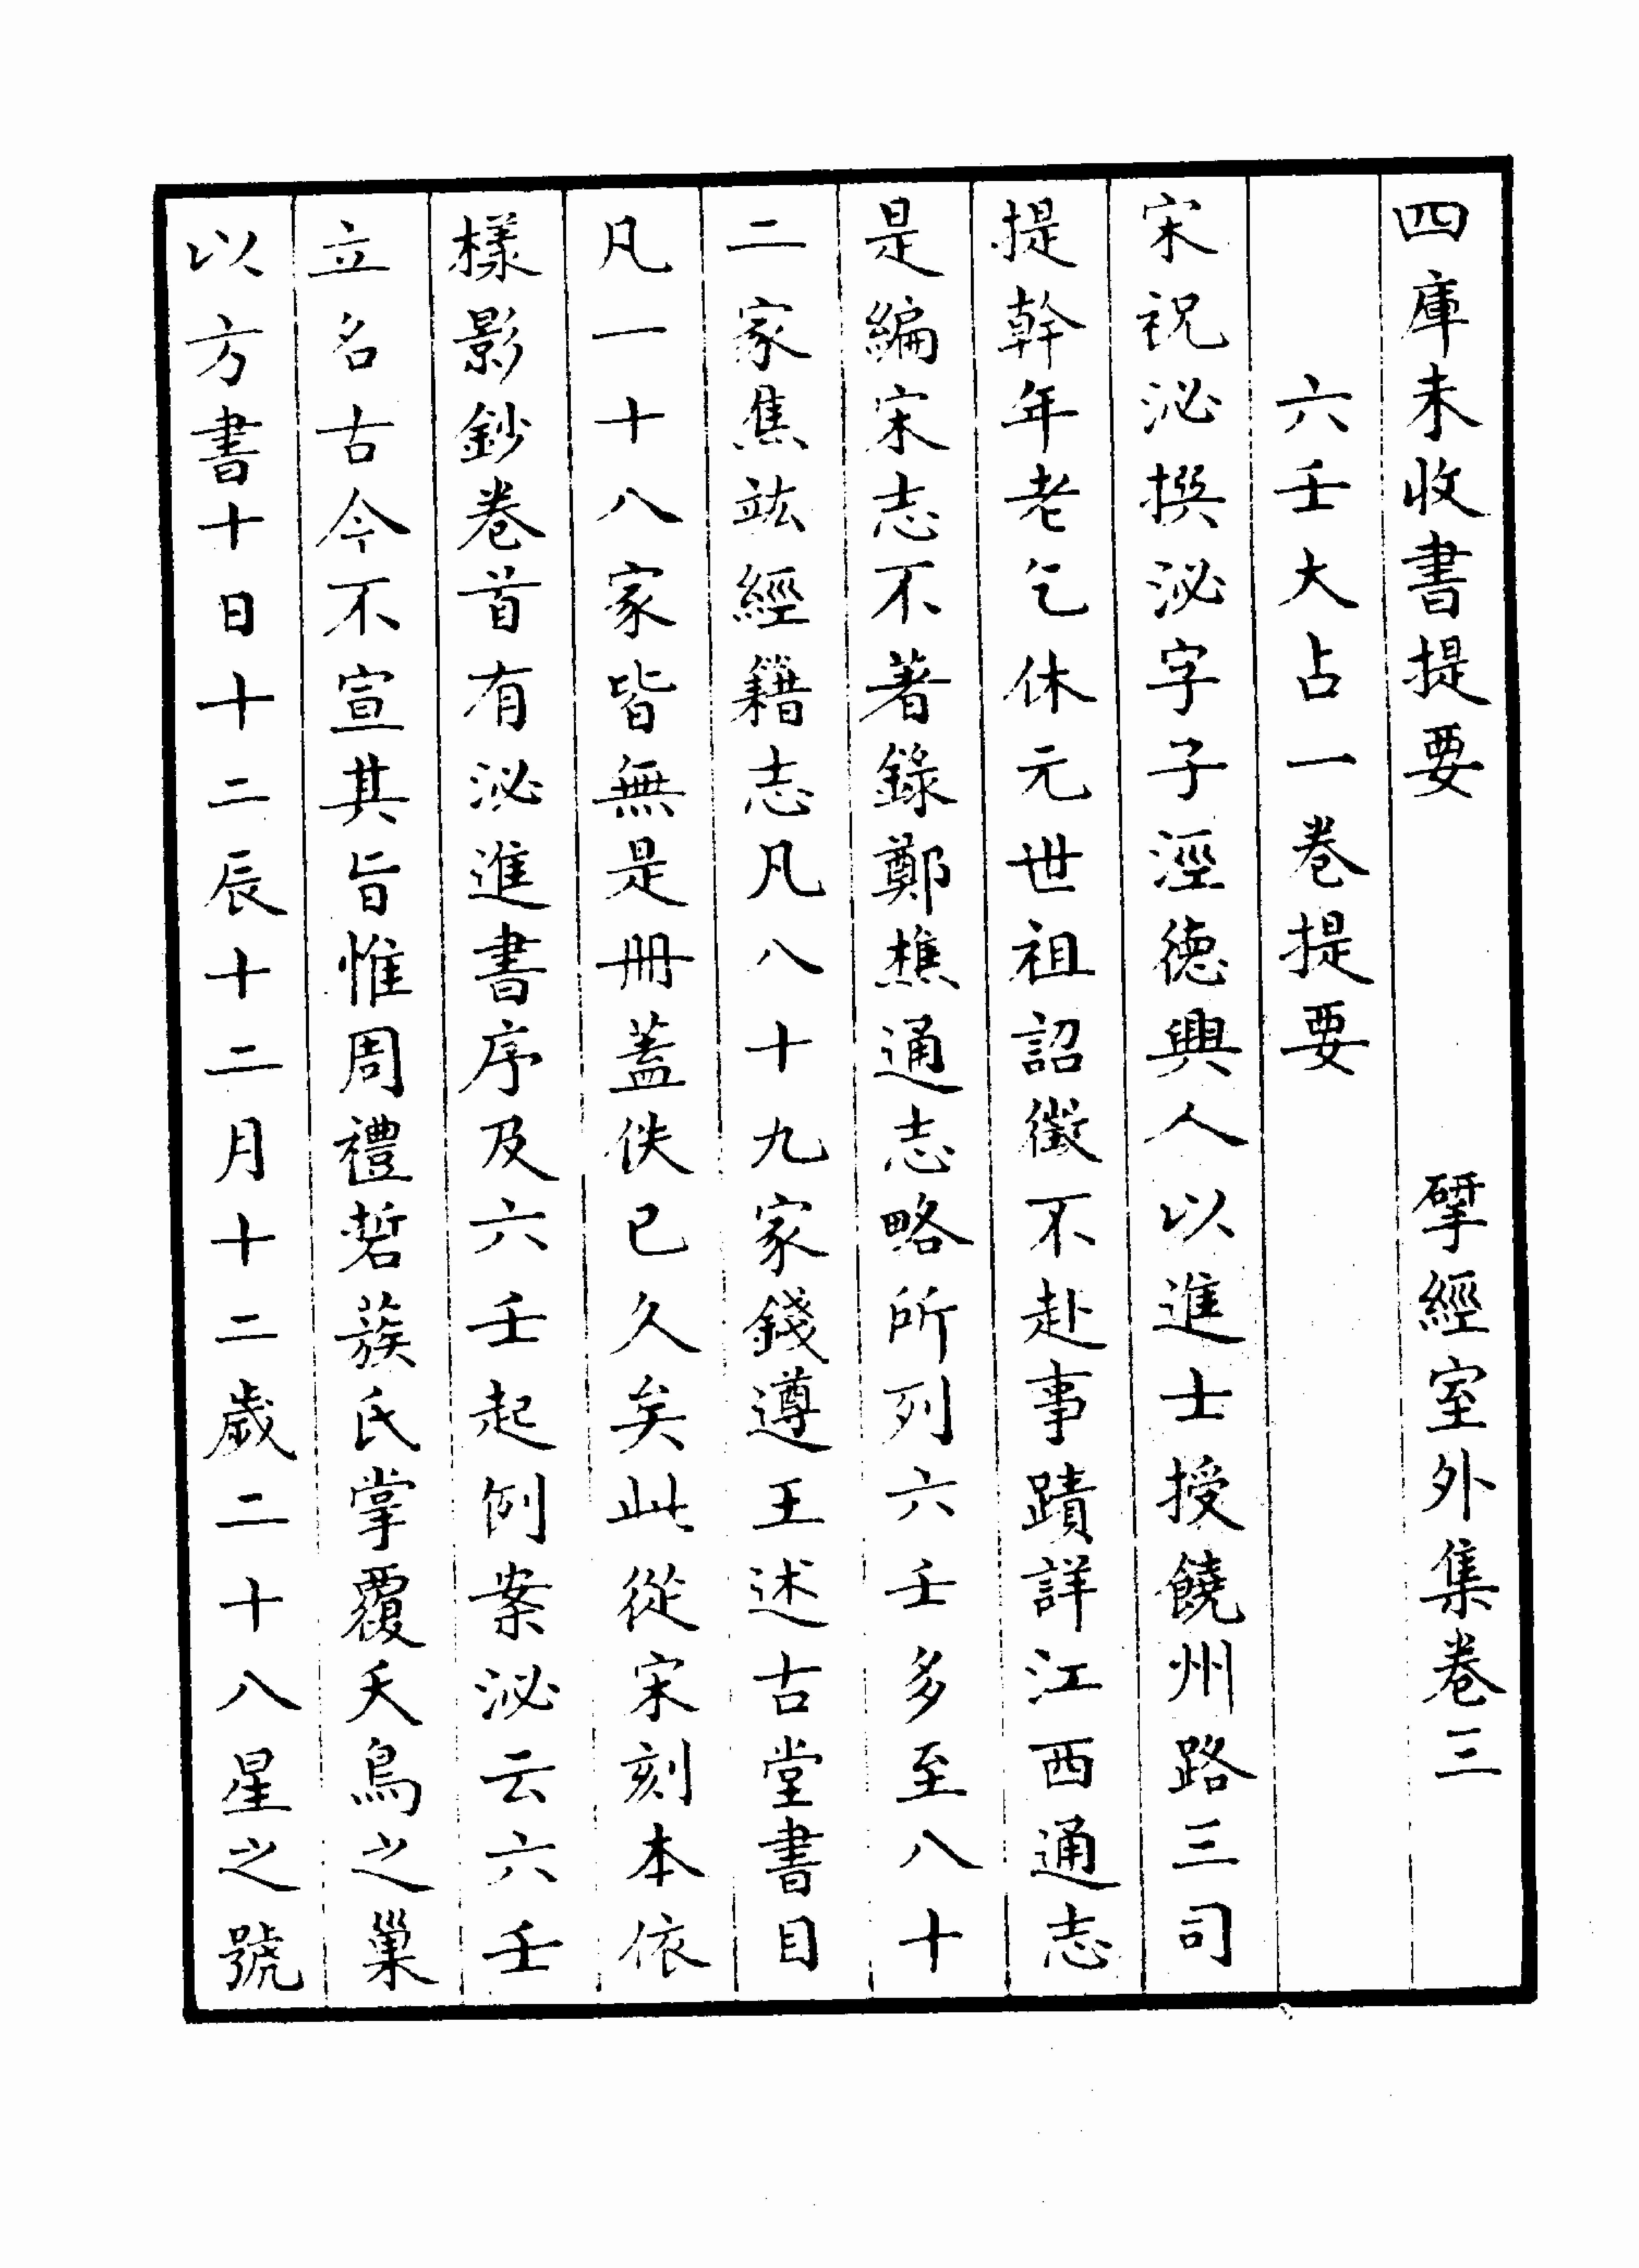 四庫未收書提要　　　　揅經室外集卷三
六壬大占一卷提要
宋祝泌撰泌字子涇德興人以進士授饒州路三司
提幹年老乞休元世祖詔徵不赴事蹟詳江西通志
是編宋志不著錄鄭樵通志略所列六壬多至八十
二家焦竑經籍志凡八十九家錢遵王述古堂書目
凡一十八家皆無是冊蓋佚已久矣此從宋刻本依
樣影鈔卷首有泌進書序及六壬起例案泌云六壬
立名古今不宣其旨惟周禮硩蔟氏掌覆夭鳥之巢
以方書十日十二辰十二月十二歲二十八星之號